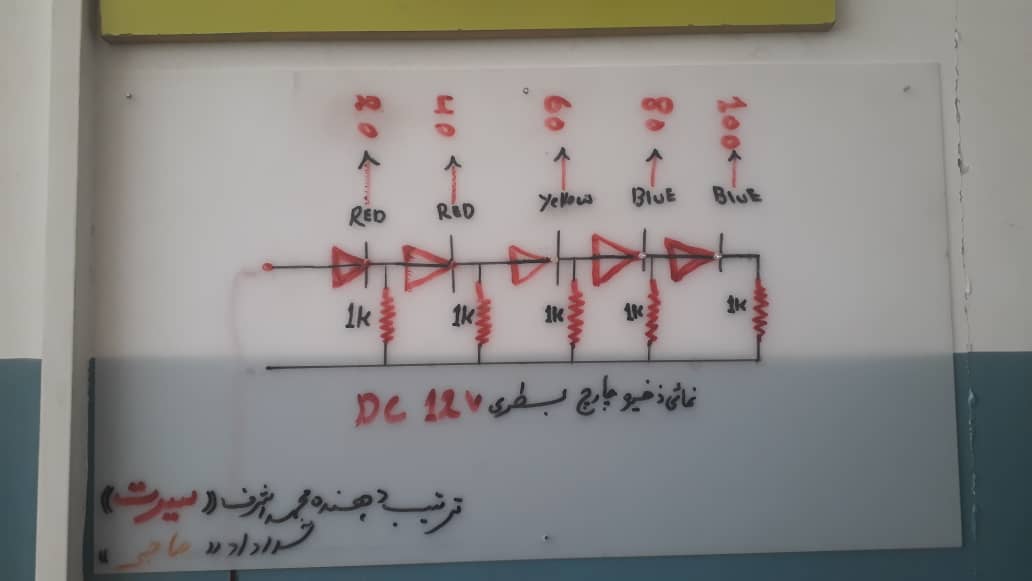 20 40 60 80 100
RED RED Yellow BluE BluE
1k 1k 1k 1k 1k
نمائی ذخیره چارج بسطری DC 12V
ترتیب دهنده محمد اشرف «سیرت»
"حاجی"